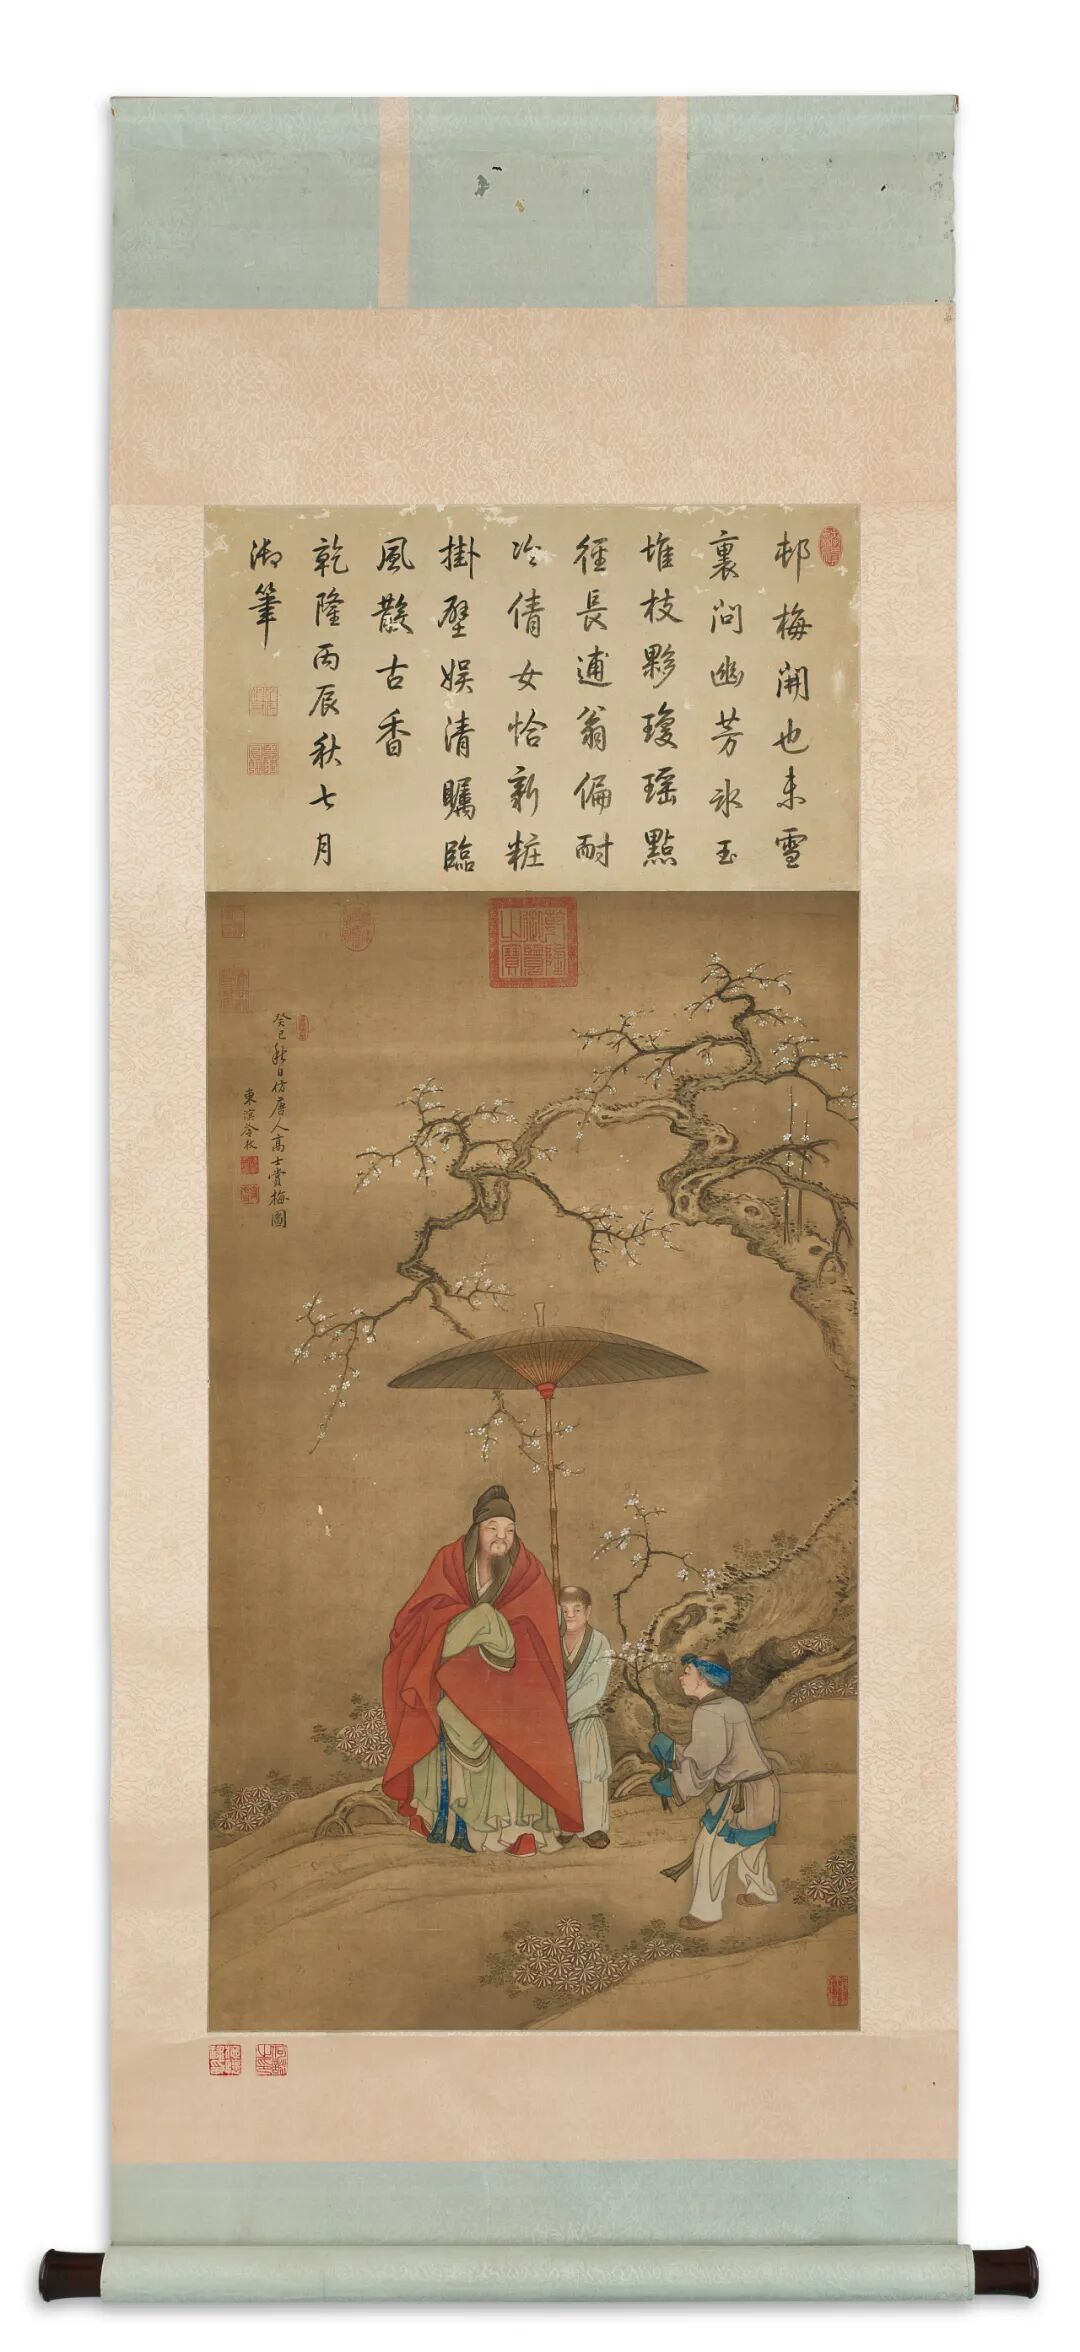 邨梅開也未雪
裏問幽芳冰玉
堆枝夥瓊瑶點
徑長逋翁偏耐
冷倩女恰新粧
掛壁娱清矚臨
風散古香
乾隆丙辰秋七月
御筆
乾隆御覽之寶
癸巳秋日仿唐人高士賞梅圖
東濱冷枚